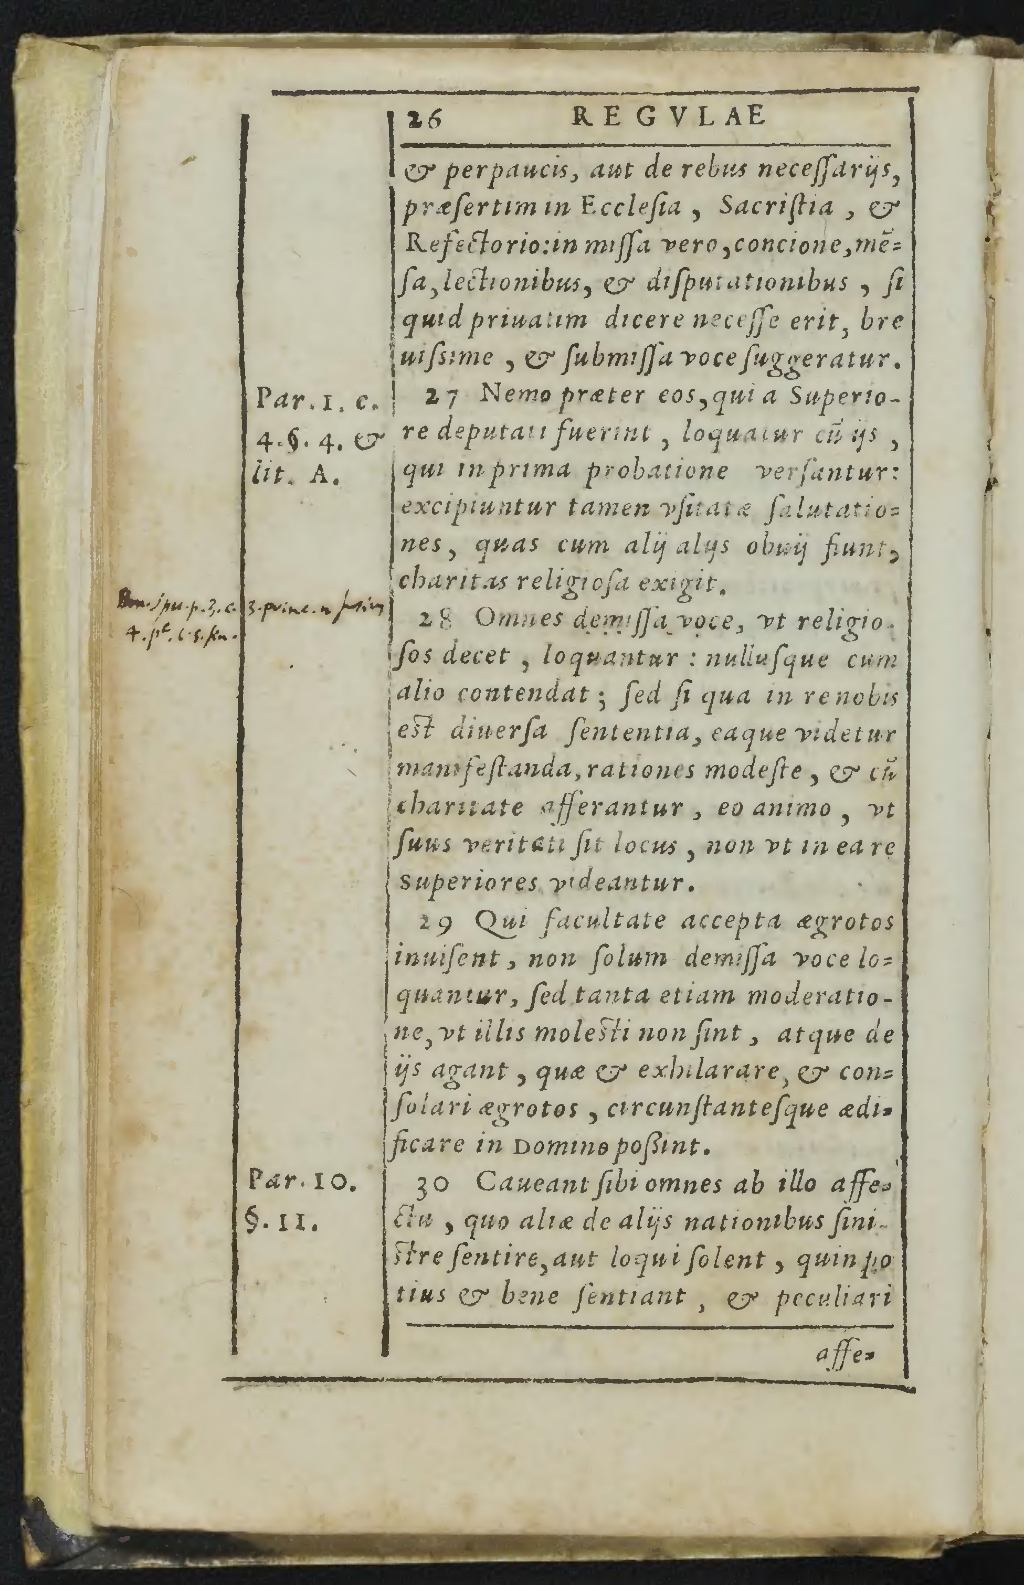 26 REGVLAE
& perpaucis, aut de rebus neceſſarijs,
præſertim in Eccleſia, Sacriſtia, &
Refectorio: in miſſa vero, concione, mē=
ſa, lectionibus, & diſputationibus, ſi
quid priuatim dicere neceſſe erit, bre
uiſsime, & ſubmiſſa voce ſuggeratur.
Par. 1. c.
4. §. 4. &
lit. A.
27 Nemo præter eos, qui a Superio-
re deputati fuerint, loquatur cū ijs,
qui in prima probatione verſantur:
excipiuntur tamen vſitatæ ſalutatio=
nes, quas cum alij alijs obuij fiunt,
charitas religioſa exigit.
28 Omnes demiſſa voce, vt religio-
ſos decet, loquantur: nulluſque cum
alio contendat; ſed ſi qua in re nobis
eſt diuerſa ſententia, eaque videtur
manifeſtanda, rationes modeſte, & cū
charitate afferantur, eo animo, vt
ſuus veritati ſit locus, non vt in ea re
Superiores videantur.
29 Qui facultate accepta ægrotos
inuiſent, non ſolum demiſſa voce lo=
quantur, ſed tanta etiam moderatio-
ne, vt illis moleſti non ſint, atque de
ijs agant, quæ & exhilarare, & con=
ſolari ægrotos, circunſtanteſque ædi=
ficare in Domino poßint.
Par. 10.
§. 11.
30 Caueant ſibi omnes ab illo affe=
ctu, quo aliæ de alijs nationibus ſini-
ſtre ſentire, aut loqui ſolent, quin po
tius & bene ſentiant, & peculiari
affe=